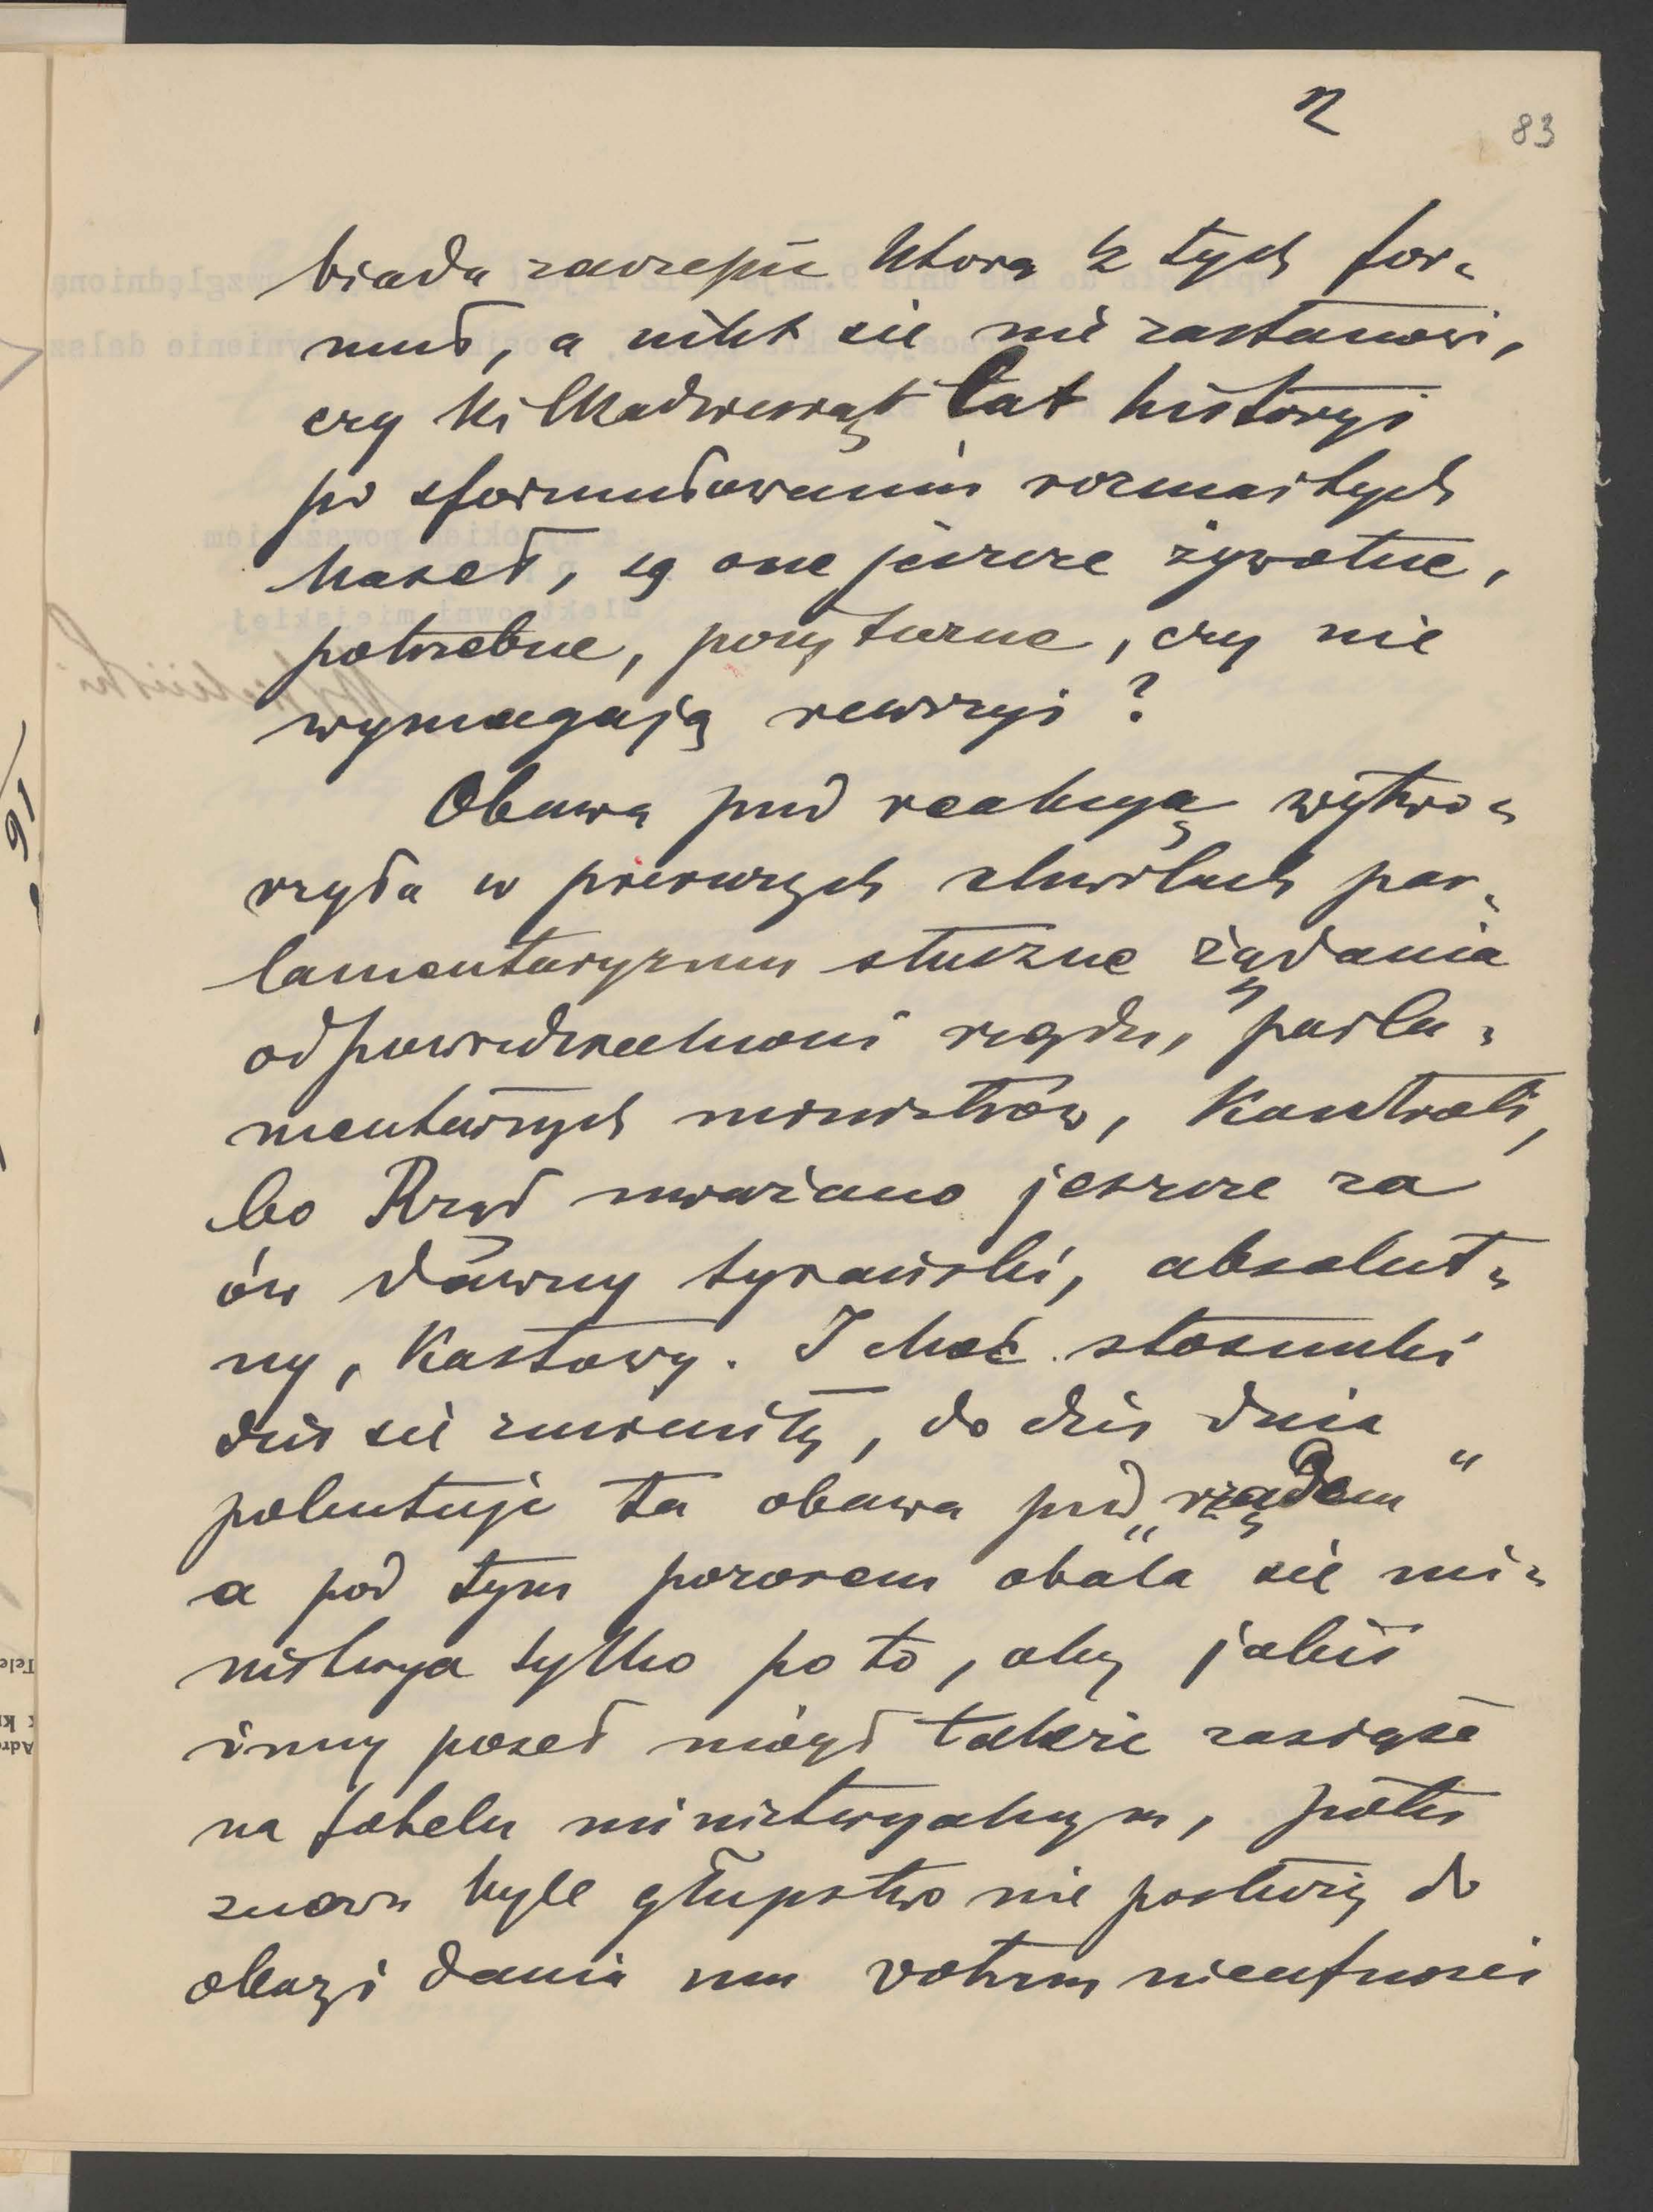 2
83
biada zaczepić którą z tych for-
muł, a nikt się nie zastanowi,
czy kilkadziesiąt lat historyi
po sformułowaniu rozmaitych
haseł, są one jeszcze żywotne,
potrzebne, pożyteczne, czy nie
wymagają rewizyi?
Obawa przed reakcyą wytwo-
rzyła w pierwszych chwilach par-
lamentaryzmu słuszne żądania
odpowiedzialności rządu, parla-
mentarnych ministrów, kontroli,
bo Rząd uważano jeszcze za
ów dawny tyrański, absolut-
ny, kastowy. I choć stosunki
dziś się zmieniły, do dziś dnia
pokutuje ta obawa przed „rządem"
a pod tym pozorem obala się mi-
nisterya tylko po to, aby jakiś
inny poseł mógł także zasiąść
na fotelu ministeryalnym, póki
znowu byle głupstwo nie posłuży do
okazyi dania mu votum nieufności